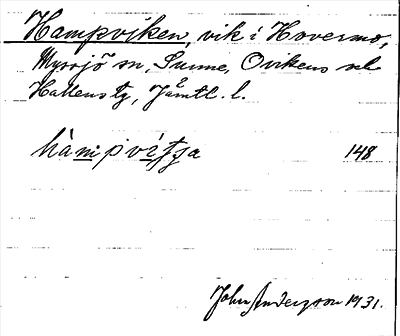 Hampviken, vik i Hovermo,
Myssjö sn, Sunne, Ovikens och
Hallens tg, Jämtl. l.
hàmpvìtʃa 148
John Andersson 1931.